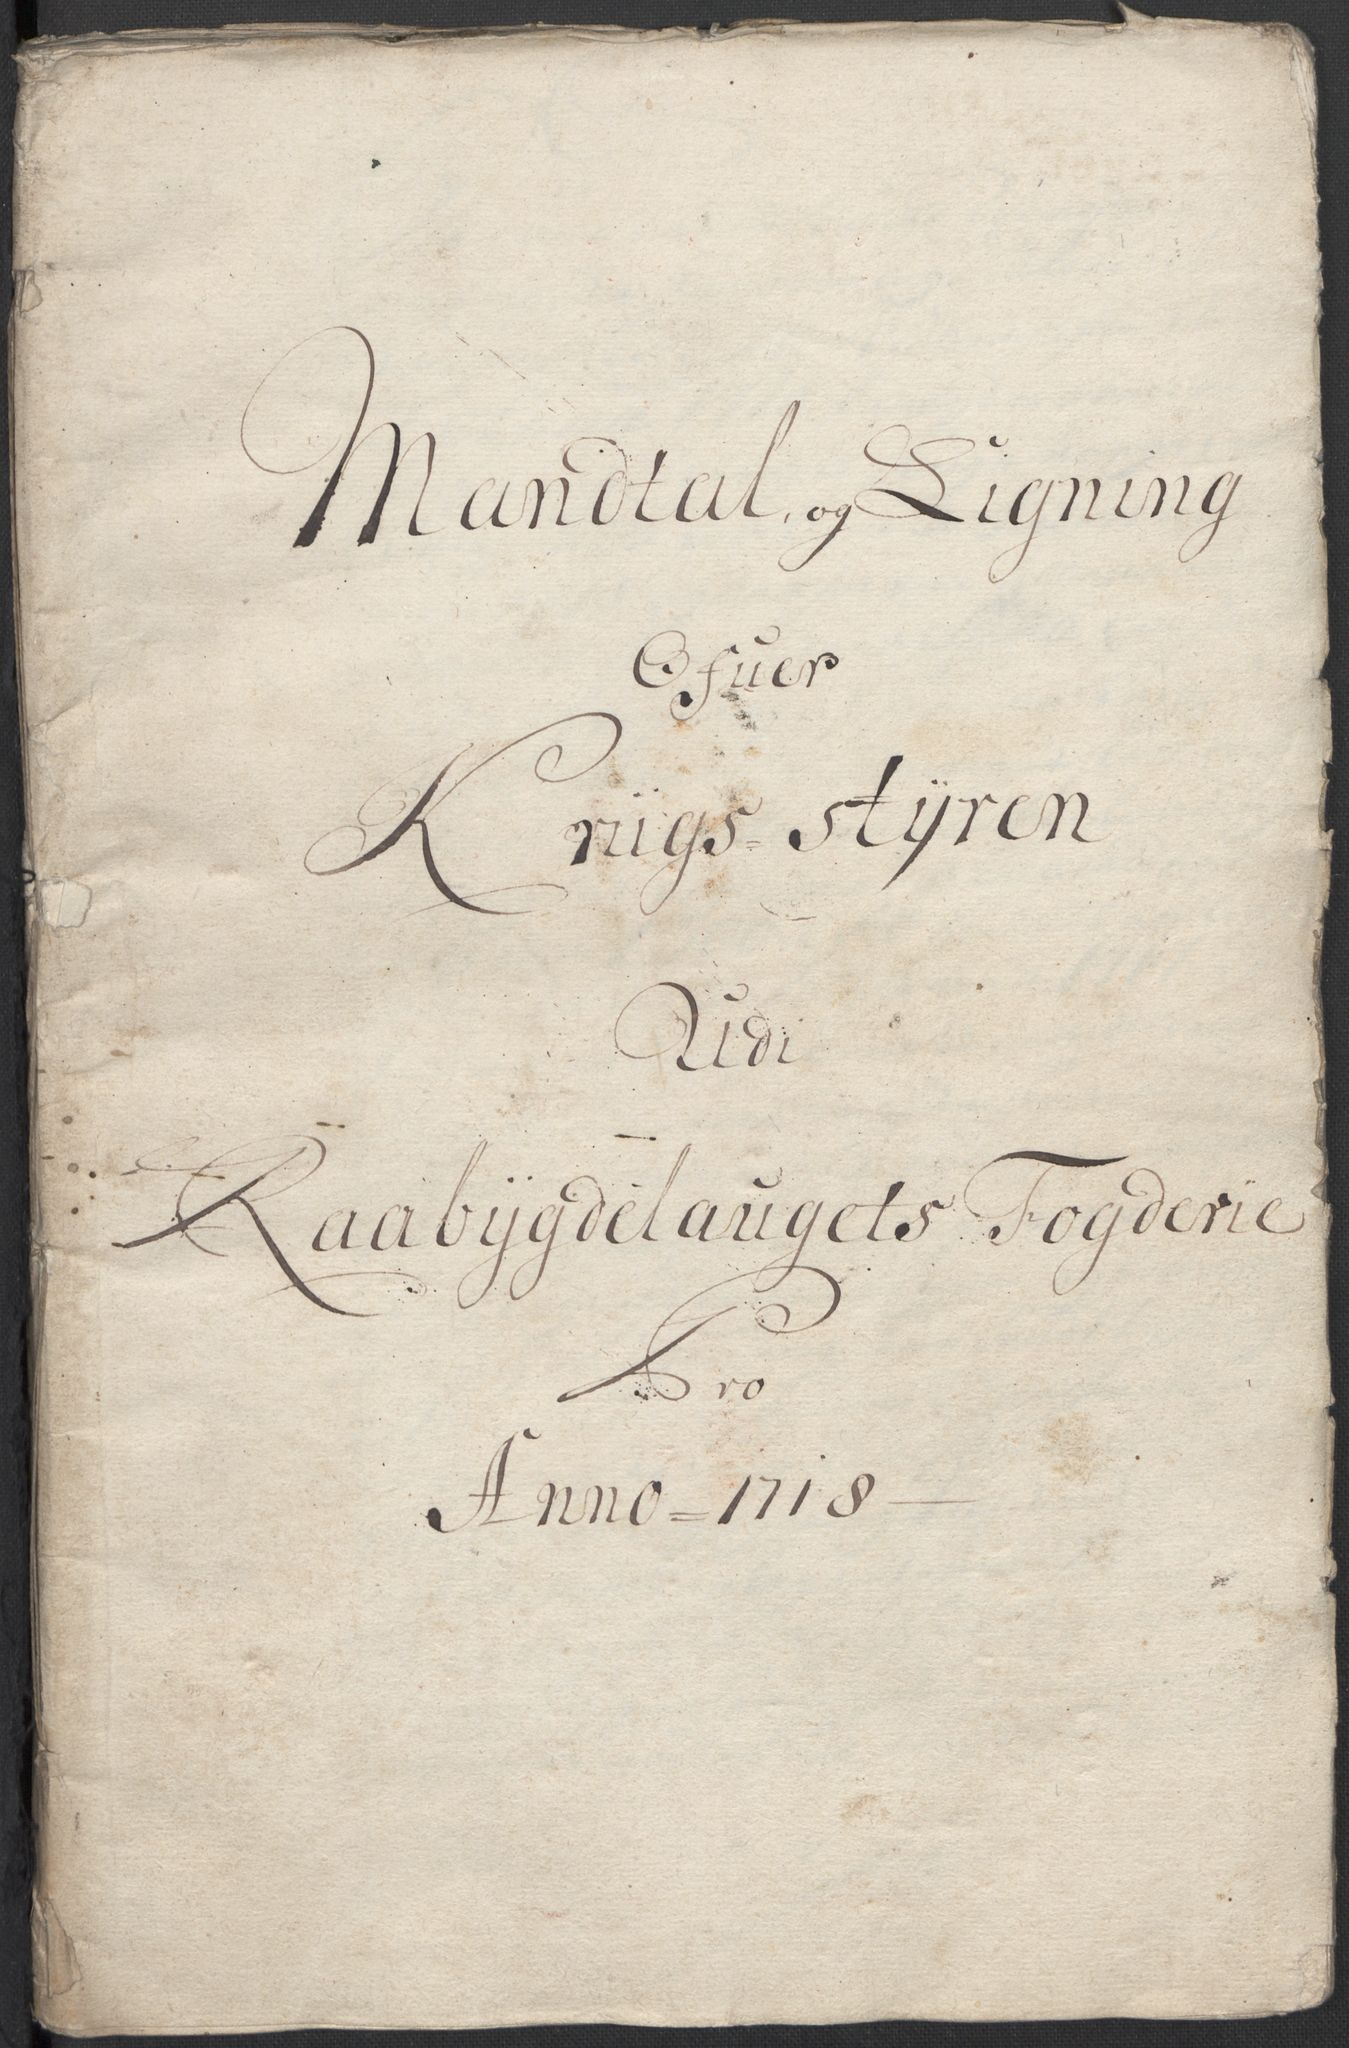 Mandtal, og Ligning
Ofuer
Kriigs-styren
Udi
Raabÿgdelaugets Fogderie
Pro
Anno=1718